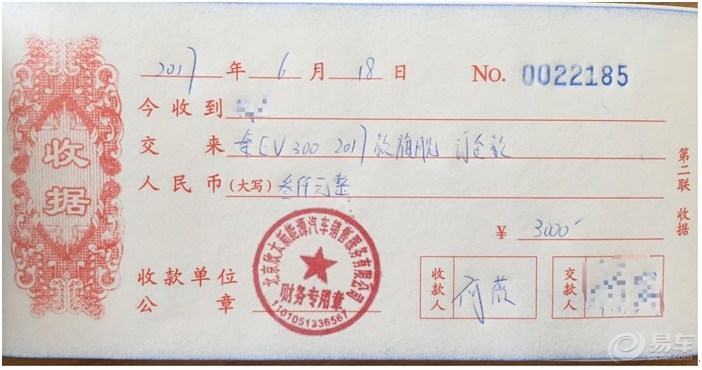 收据
2017 年 6 月 18 日 No. 0022185
今收到
交 来 秦EV300 2017款旗舰 订金款
人民币(大写) 叁仟元整
¥ 3000
收款单位
公 章
北京欣大新能源汽车销售服务有限公司
财务专用章
1101051336567
收款人 何薇
交款人
第二联 收据
易车